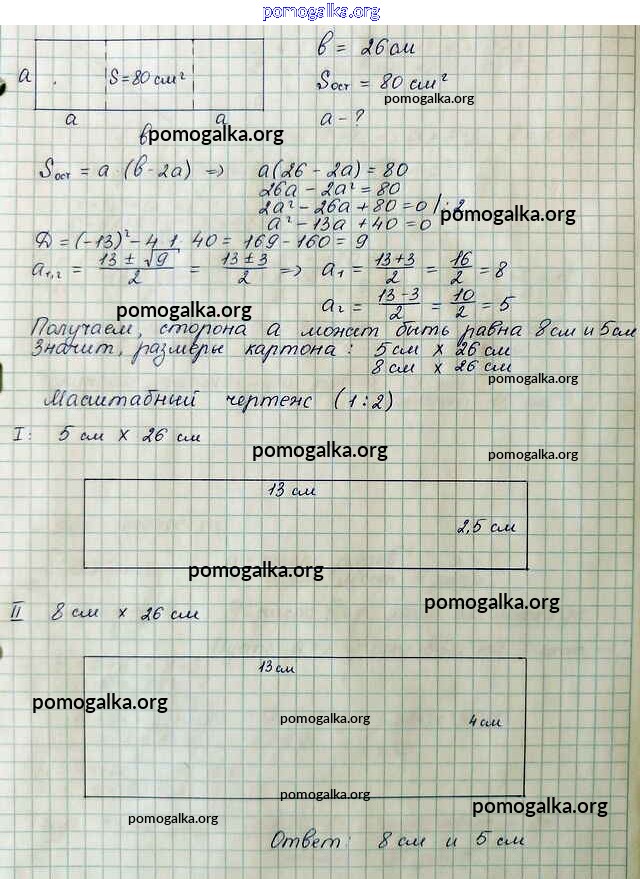 pomogalka.org
a
S = 80 см²
a
a
в
в = 26 см
Sост = 80 см²
pomogalka.org
a - ?
pomogalka.org
Sост = a · (в - 2a) => a(26 - 2a) = 80
26a - 2a² = 80
2a² - 26a + 80 = 0 / : 2
pomogalka.org
a² - 13a + 40 = 0
D = (-13)² - 4 · 1 · 40 = 169 - 160 = 9
a1,2 = (13 ± √9)/2 = (13 ± 3)/2 => a1 = (13+3)/2 = 16/2 = 8
a2 = (13-3)/2 = 10/2 = 5
pomogalka.org
Получаем, сторона a может быть равна 8 см и 5 см
Значит, размеры картона: 5 см x 26 см
8 см x 26 см
pomogalka.org
Масштабный чертеж (1:2)
I: 5 см x 26 см
pomogalka.org
pomogalka.org
13 см
2,5 см
pomogalka.org
pomogalka.org
II 8 см x 26 см
13 см
pomogalka.org
pomogalka.org
4 см
pomogalka.org
pomogalka.org
pomogalka.org
Ответ: 8 см и 5 см